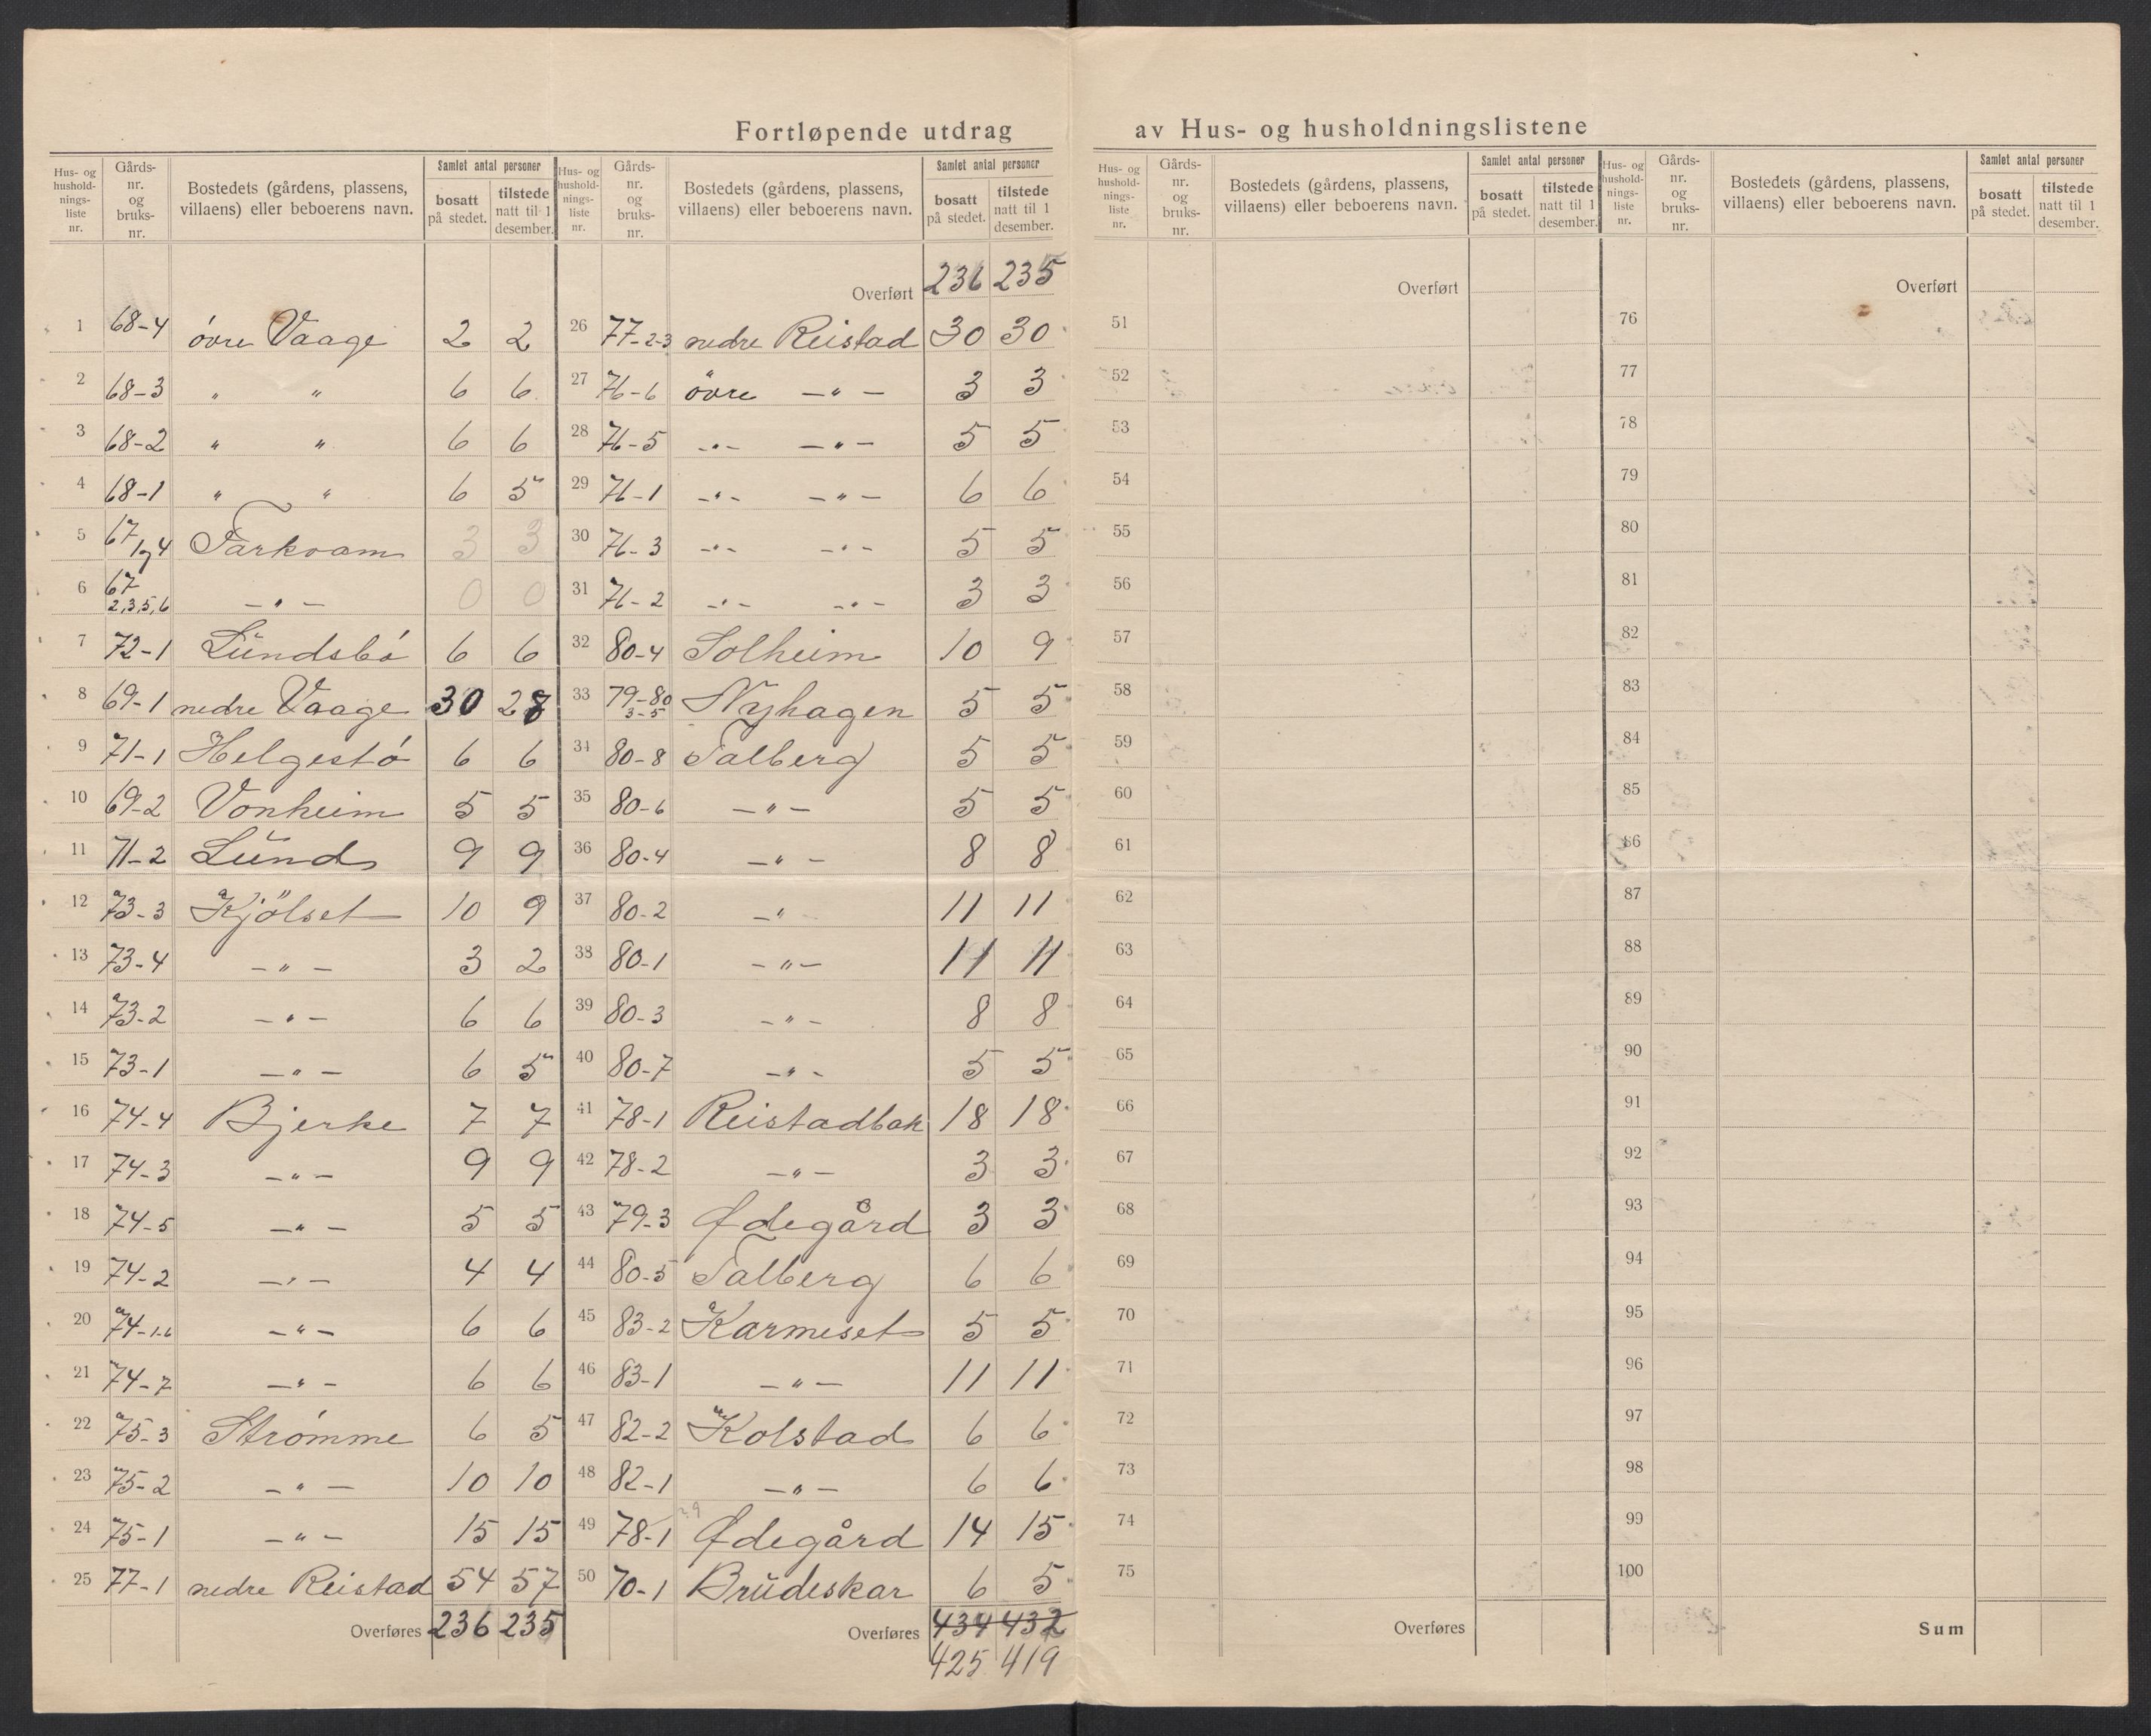 Fortløpende utdrag av Hus- og husholdningslistene
Hus- og hushold-nings-liste nr. Gårds-nr. og bruks-nr. Bostedets (gårdens, plassens, villaens) eller beboerens navn. Samlet antal personer bosatt på stedet. tilstede natt til 1 desember.
1 68-4 óvre Vaage 2 2
2 68-3 " " 6 6
3 68-2 " " 6 6
4 68-1 " " 6 5
5 67 1 og 4 Farkvam 3 3
6 67 2,3,5,6 -"- 0 0
7 72-1 Lundsbó 6 6
8 69-1 nedre Vaage 30 28
9 71-1 Helgestó 6 6
10 69-2 Vonheim 5 5
11 71-2 Lund 9 9
12 73-3 Kjölset 10 9
13 73-4 -"- 3 2
14 73-2 -"- 6 6
15 73-1 -"- 6 5
16 74-4 Bjerke 7 7
17 74-3 -"- 9 9
18 74-5 -"- 5 5
19 74-2 -"- 4 4
20 74-1-6 -"- 6 6
21 74-7 -"- 6 6
22 75-3 Strómme 6 5
23 75-2 -"- 10 10
24 75-1 -"- 15 15
25 77-1 nedre Reistad 54 57
Overføres 236 235
Hus- og hushold-nings-liste nr. Gårds-nr. og bruks-nr. Bostedets (gårdens, plassens, villaens) eller beboerens navn. Samlet antal personer bosatt på stedet. tilstede natt til 1 desember.
Overført 236 235
26 77-2-3 nedre Reistad 30 30
27 76-6 övre -"- 3 3
28 76-5 -"- -"- 5 5
29 76-1 -"- -"- 6 6
30 76-3 -"- -"- 5 5
31 76-2 -"- -"- 3 3
32 80-4 Solheim 10 9
33 79-80 3-5 Nyhagen 5 5
34 80-8 Talberg 5 5
35 80-6 -"- 5 5
36 80-4 -"- 8 8
37 80-2 -" 11 11
38 80-1 -"- 11 11
39 80-3 -"- 8 8
40 80-7 -"- 5 5
41 78-1 Reistadbak 18 18
42 78-2 -"- 3 3
43 79-3 Ødegård 3 3
44 80-5 Talberg 6 6
45 83-2 Karmeset 5 5
46 83-1 -"- 11 11
47 82-2 Kolstad 6 6
48 82-1 -"- 6 6
49 78-1 Ødegård 14 15
50 70-1 Brudeskar 6 5
Overføres 434 432
425 419
Hus- og hushold-nings-liste nr. Gårds-nr. og bruks-nr. Bostedets (gårdens, plassens, villaens) eller beboerens navn. Samlet antal personer bosatt på stedet. tilstede natt til 1 desember.
Overført
51
52
53
54
55
56
57
58
59
60
61
62
63
64
65
66
67
68
69
70
71
72
73
74
75
Overføres
Hus- og hushold-nings-liste nr. Gårds-nr. og bruks-nr. Bostedets (gårdens, plassens, villaens) eller beboerens navn. Samlet antal personer bosatt på stedet. tilstede natt til 1 desember.
Overført
76
77
78
79
80
81
82
83
84
85
86
87
88
89
90
91
92
93
94
95
96
97
98
99
100
Sum